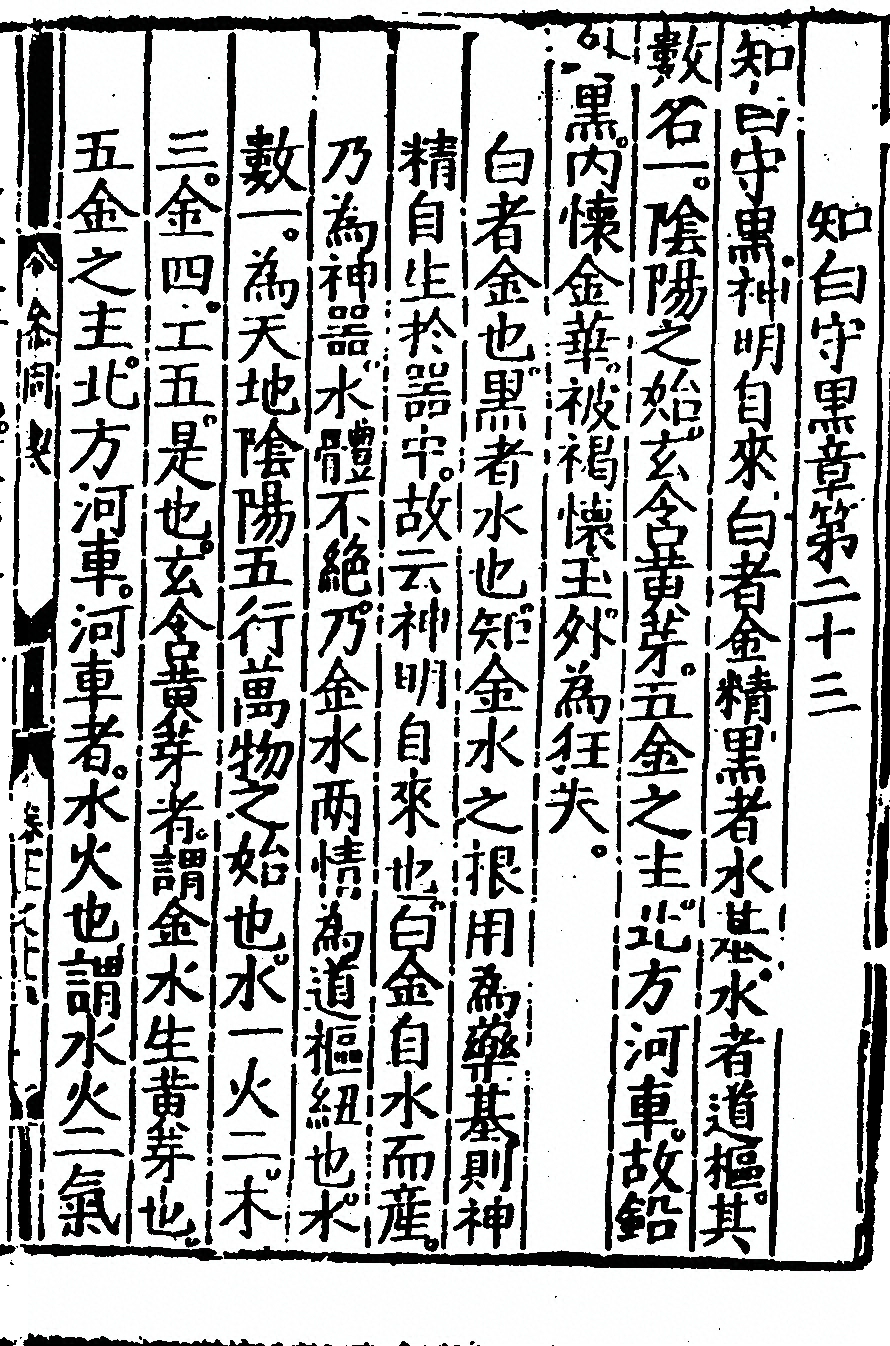 知白守黒章第二十三
知白守黒。神明自來白者金精黒者水基。水者道樞。其
數名一。陰陽之始。玄含黃芽。五金之主北方河車。故鉛
外黒。内懐金華。被褐懷玉。外為狂夫。
白者金也。黒者水也。知金水之根用為藥基則神
精自生於器中。故云神明自來也。白金自水而産。
乃為神器。水體不絶。乃金水两情為道樞紐也。水
數一。為天地陰陽五行萬物之始也。水一火二。木
三。金四。土五。是也。玄含黃芽者。謂金水生黃芽也。
五金之主。北方河車。河車者。水火也謂水火二氣